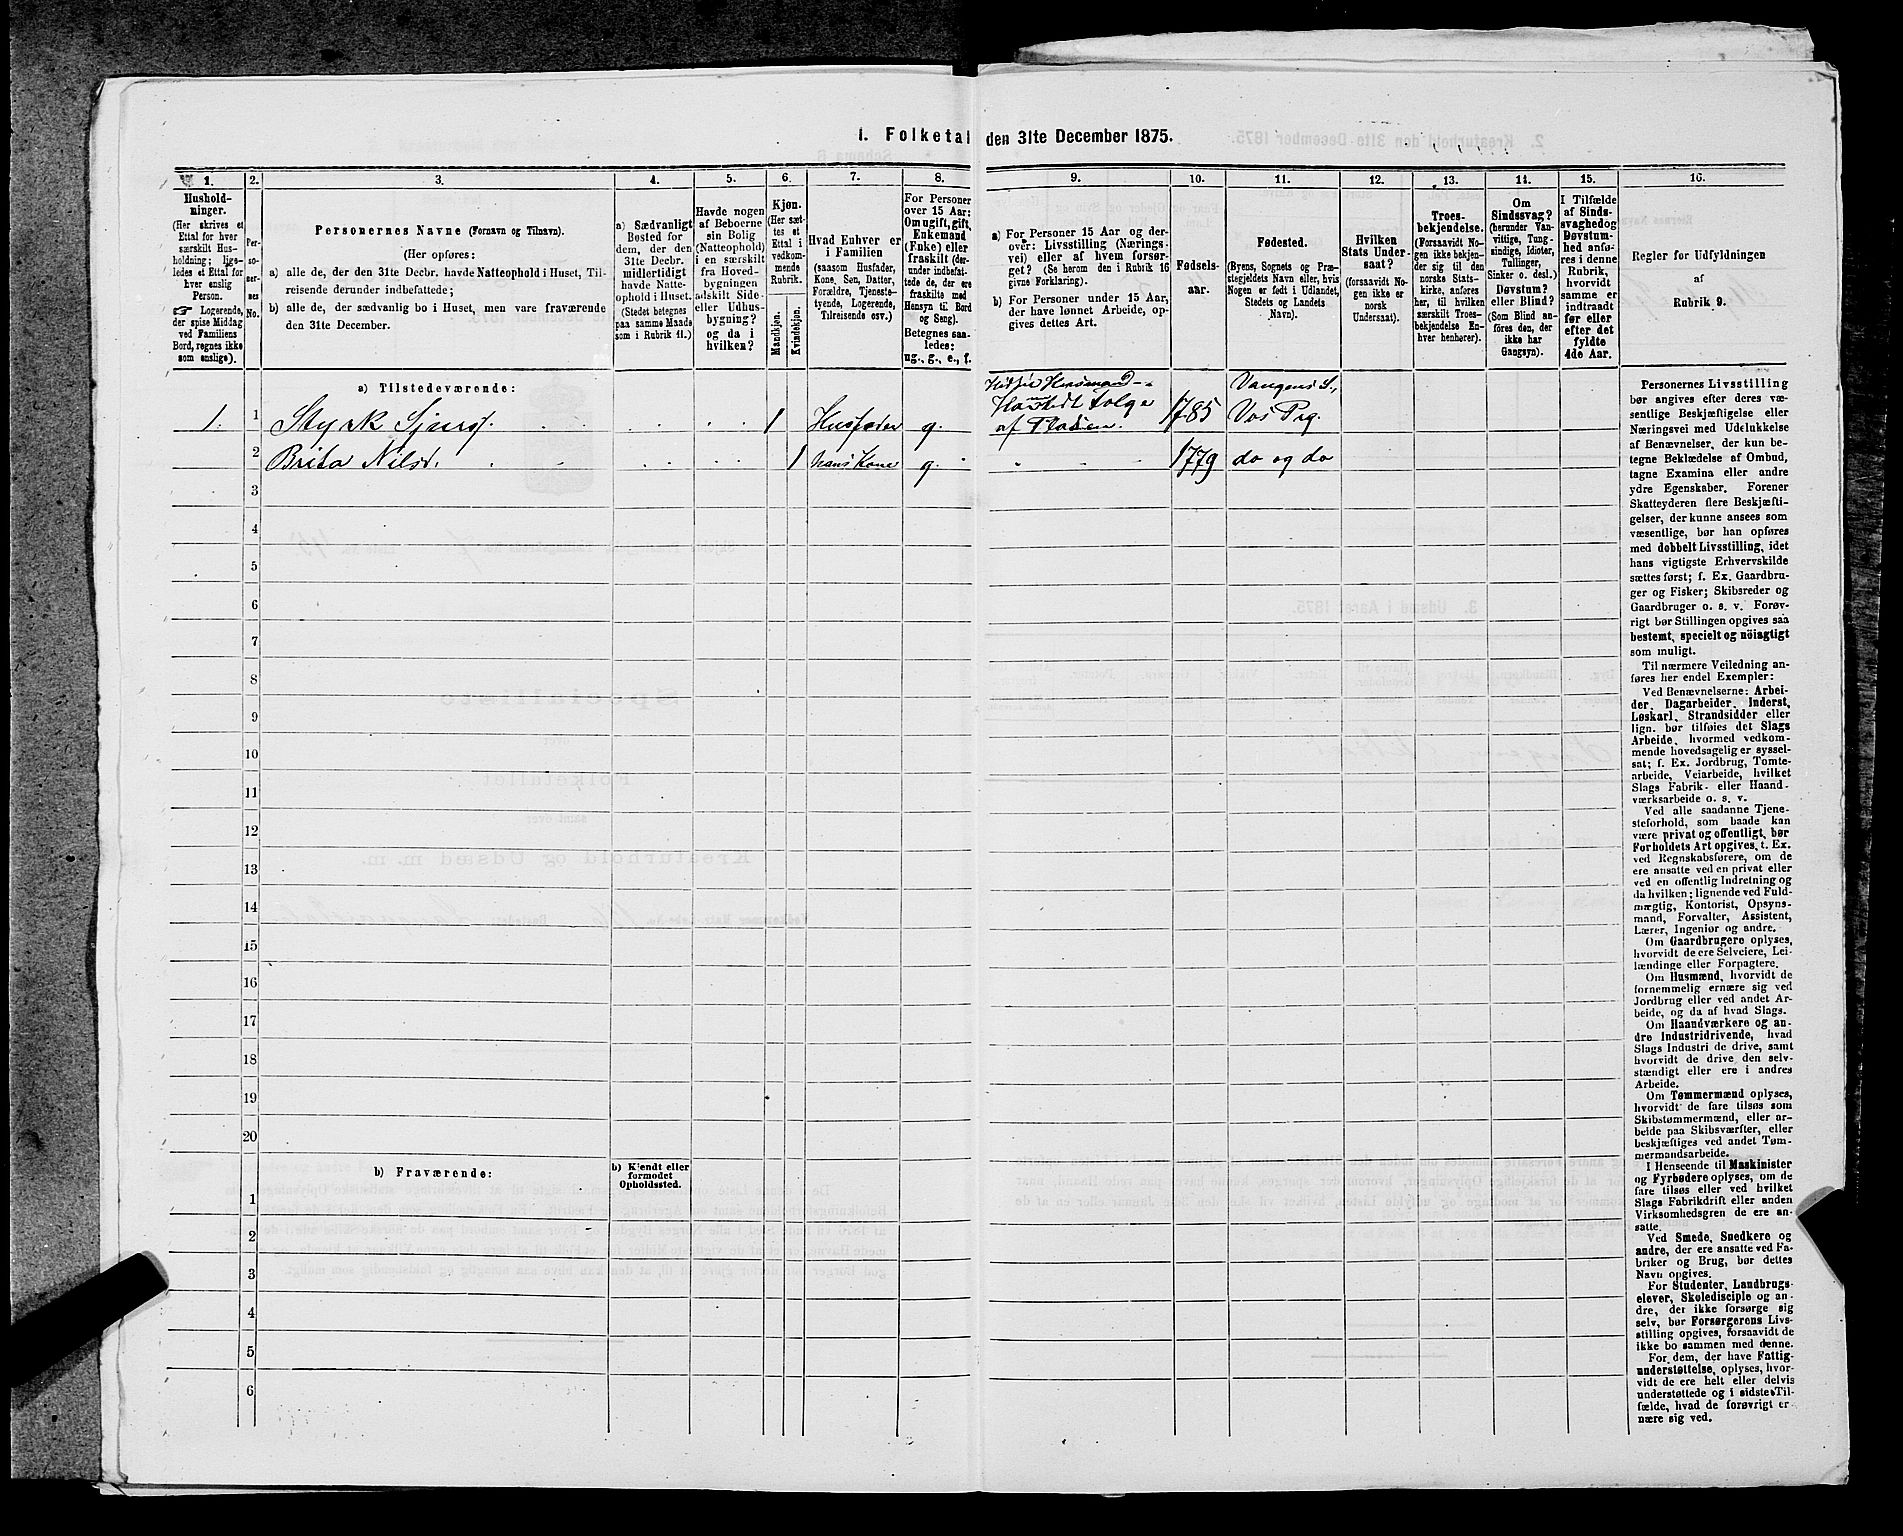 1. Folketal den 31te December 1875.
1.
Hushold-
ninger.
(Her skrives et
Ettal for hver
særskilt Hus-
holdning; lige-
ledes et Ettal for
hver enslig
Person.
☞ Logerende,
der spise Middag
ved Familiens
Bord, regnes ikke
som enslige).
2.
Per-
so-
ner-
nes
No.
3.
Personernes Navne (Fornavn og Tilnavn).
(Her opføres:
a) alle de, der den 31te Decbr. havde Natteophold i Huset, Til-
reisende derunder indbefattede;
b) alle de, der sædvanlig bo i Huset, men vare fraværende
den 31te December.
4.
a) Sædvanligt
Bosted for
dem, der den
31te Decbr.
midlertidigt
havde Natte-
ophold i Huset.
(Stedet betegnes
paa samme Maade
som i Rubrik 11.)
5.
Havde nogen
af Beboerne
sin Bolig
(Natteophold)
i en særskilt
fra Hoved-
bygningen
adskilt Side-
eller Udhus-
bygning?
og da i
hvilken?
6.
Kjøn.
(Her sæt-
tes et
Ettal i
vedkom-
mende
Rubrik.)
Mandkjøn.
Kvindekjøn.
7.
Hvad Enhver er
i Familien
(saasom Husfader,
Kone, Søn, Datter,
Forældre, Tjeneste-
tyende, Logerende,
Tilreisende osv.)
8.
For Personer
over 15 Aar:
Om ugift, gift,
Enkemand
(Enke) eller
fraskilt (der-
under indbefat-
tede de, der ere
fraskilte med
Hensyn til Bord
og Seng).
Betegnes saa-
ledes:
ug., g., e., f.
9.
a) For Personer 15 Aar og der-
over: Livsstilling (Nærings-
vei) eller af hvem forsør-
get? (Se herom den i Rubrik 16
givne Forklaring).
b) For Personer under 15 Aar,
der have lønnet Arbeide, op-
gives dettes Art.
10.
Fødsels-
aar.
11.
Fødested.
(Byens, Sognets og Præ-
stegjeldets Navn eller, hvis
Nogen er født i Udlandet,
Stedets og Landets
Navn).
12.
Hvilken
Stats Under-
saat?
(forsaavidt No-
gen ikke er
norsk
Undersaat).
13.
Troes-
bekjendelse.
(Forsaavidt No-
gen ikke bekjen-
der sig til den
norske Stats-
kirke, anføres
her, til hvilken
særskilt Troes-
bekjendelse En-
hver henhører).
14.
Om
Sindssvag?
(herunder Van-
vittige, Tung-
sindige, Idioter,
Tullinger,
Sinker o. desl.)
Døvstum?
eller Blind?
(Som Blind an-
føres den, der
ikke har
Gangsyn).
15.
I Tilfælde
af Sinds-
svaghed og
Døvstum-
hed anfø-
res i denne
Rubrik,
hvorvidt
samme er
indtraadt
før eller
efter det
fyldte
4de Aar.
16.
Regler for Udfyldningen
af
Rubrik 9.
a) Tilstedeværende:
1. 1 Styrk Sjurs. 1 Husfader g. Husmand af Pladsen. 1785 Vangens S., Vos Prg.
2 Brita Nilsd. 1 hans Kone g. 1779 do og do
3
4
5
6
7
8
9
10
11
12
13
14
15
16
17
18
19
20
b) Fraværende:
b) Kjendt eller
formodet
Opholdssted.
1
2
3
4
5
6
Personernes Livsstilling
bør angives efter deres væ-
sentlige Beskjæftigelse eller
Næringsvei med Udelukkelse
af Benævnelser, der kun be-
tegne Beklædelse af Ombud,
tagne Examina eller andre
ydre Egenskaber. Forener
Skatteyderen flere Beskjæfti-
gelser, der kunne ansees som
væsentlige, bør han opføres
med dobbelt Livsstilling, idet
hans vigtigste Erhvervskilde
sættes først; f. Ex. Gaardbru-
ger og Fisker; Skibsreder og
Gaardbruger o. s. v. Forøv-
rigt bør Stillingen opgives saa
bestemt, specielt og nöiagtigt
som muligt.
Til nærmere Veiledning an-
føres her endel Exempler:
Ved Benævnelserne: Arbei-
der, Dagarbeider, Inderst,
Løskarl, Strandsidder eller
lign. bør tilføies det Slags
Arbeide, hvormed vedkom-
mende hovedsagelig er syssel-
sat; f. Ex. Jordbrug, Tomte-
arbeide, Veiarbeide, hvilket
Slags Fabrik- eller Haand-
værksarbeide o. s. v.
Ved alle saadanne Tjene-
steforhold, som baade kan
være privat og offentligt, bør
Forholdets Art opgives, t. Ex.
ved Regnskabsførere, om de
ere ansatte ved en privat eller
ved en offentlig Indretning og
da hvilken; lignende ved Fuld-
mægtig, Kontorist, Opsyns-
mand, Forvalter, Assistent,
Lærer, Ingeniør og andre.
Om Gaardbrugere oplyses,
hvorvidt de ere Selveiere, Lei-
lændinge eller Forpagtere.
Om Husmænd, hvorvidt de
fornemmelig ernære sig ved
Jordbrug eller ved andet Ar-
beide, og da af hvad Slags.
Om Haandværkere og an-
dre Industridrivende, hvad
Slags Industri de drive, samt
hvorvidt de drive den selv-
stændigt eller ere i andres
Arbeide.
Om Tømmermænd oplyses,
hvorvidt de fare tilsøs som
Skibstømmermænd, eller ar-
beide paa Skibsværfter, eller
beskjæftiges ved andet Tøm-
mermandsarbeide.
I Henseende til Maskinister
og Fyrbødere oplyses, om de
fare tilsøs eller ved hvilket
Slags Fabrikdrift eller anden
Virksomhedsgren de ere an-
satte.
Ved Smede, Snedkere og
andre, der ere ansatte ved Fa-
briker og Brug, bør dettes
Navn opgives.
For Studenter, Landbrugs-
elever, Skoledisciple og an-
dre, der ikke forsørge sig
selv, bør Forsørgerens Livs-
stilling opgives, forsaavidt de
ikke bo sammen med denne.
For dem, der have Fattig-
understøttelse, oplyses, hvor-
vidt de ere helt eller delvis
understøttede og i sidste Til-
fælde, hvad de forøvrigt er-
nære sig ved.